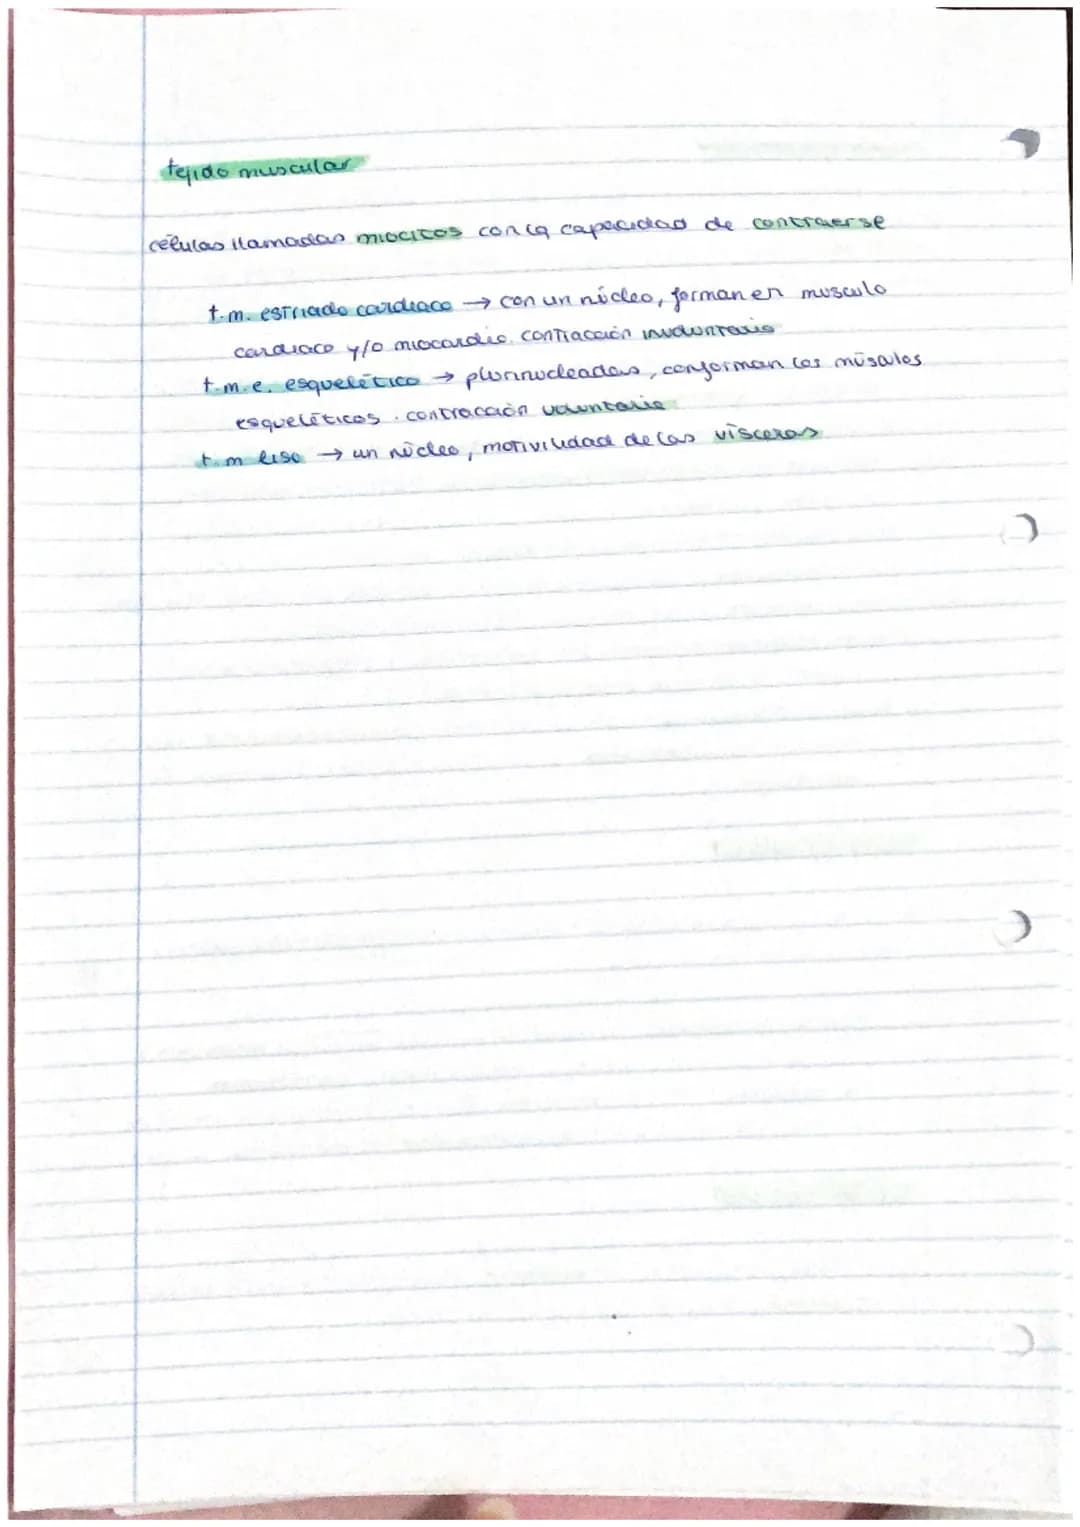 tejido muscular
células llamadas miocitos con la capacidad de contraerse
t.m. estriado cardiaco → con un núcleo, forman en musculo
cardiaco y/o miocardio. contracción involuntario
t.m.e. esquelético → plurinucleadas, conforman los músculos
esqueléticos. contracción voluntaria
t.m liso → un núcleo, motivilidad de las vísceras